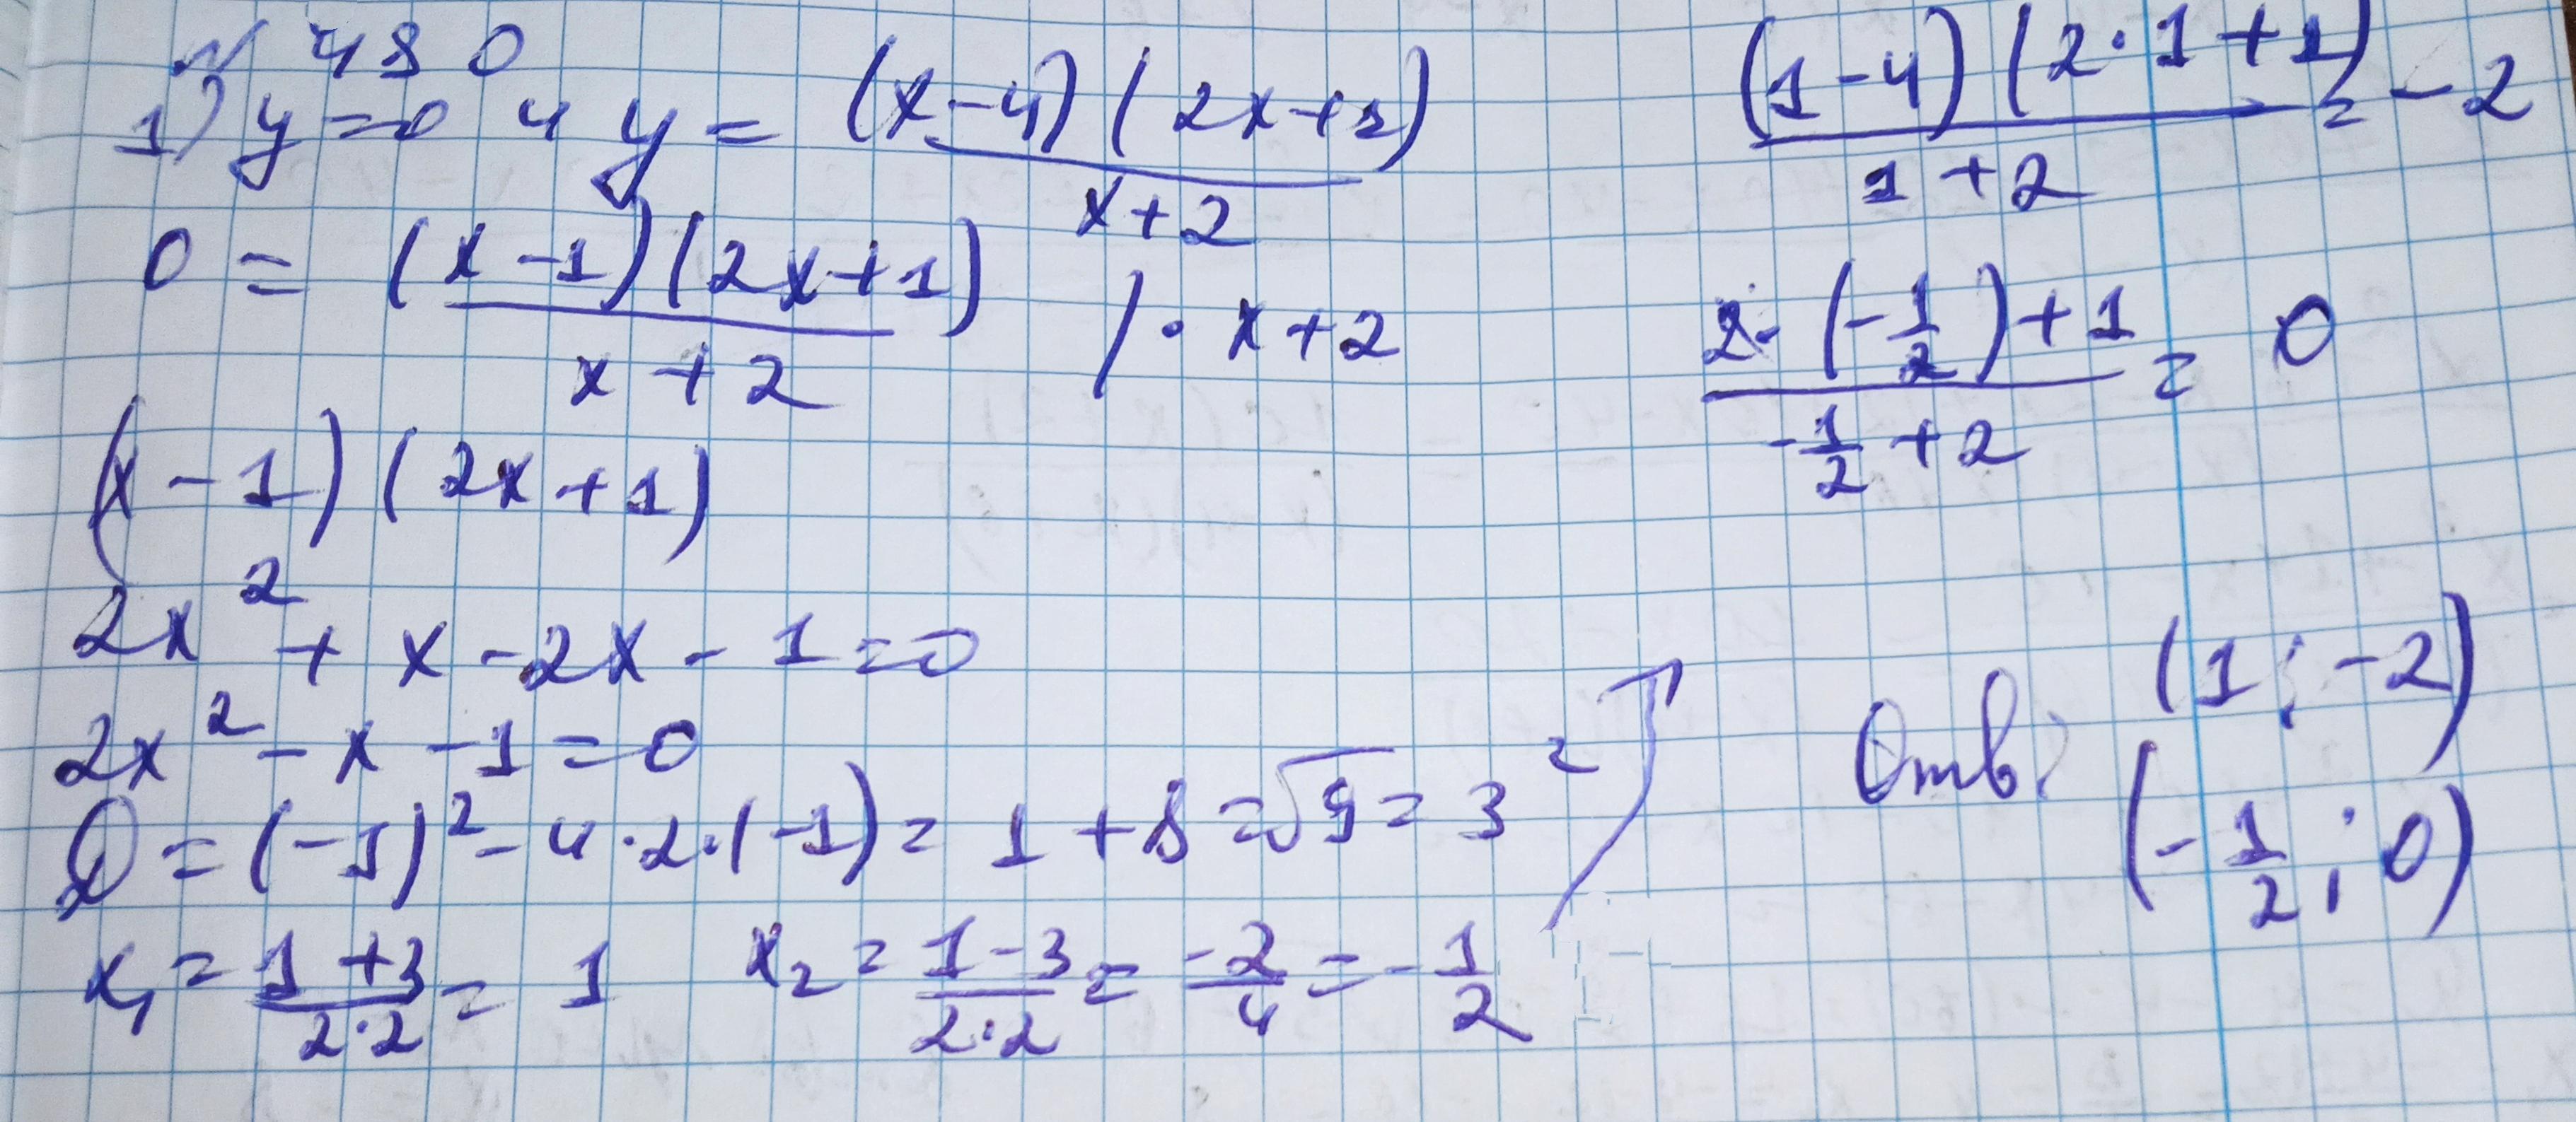 № 480
1) y=0 и y = (x-4)(2x+1) / x+2
0 = (x-1)(2x+1) / x+2 / · x+2
(x-1)(2x+1)
2x² + x - 2x - 1 = 0
2x² - x - 1 = 0
D = (-1)² - 4·2·(-1) = 1 + 8 = √9 = 3²
x₁ = 1+3 / 2·2 = 1 x₂ = 1-3 / 2·2 = -2 / 4 = - 1/2
(1-4)(2·1+1) / 1+2 = -2
2·(-1/2)+1 / -1/2+2 = 0
Отв: (1; -2)
(-1/2; 0)